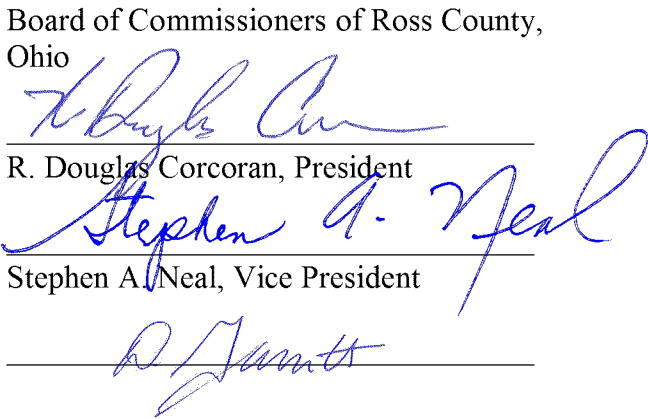 Board of Commissioners of Ross County,
Ohio
R. Douglas Corcoran, President
Stephen A. Neal
Stephen A. Neal, Vice President